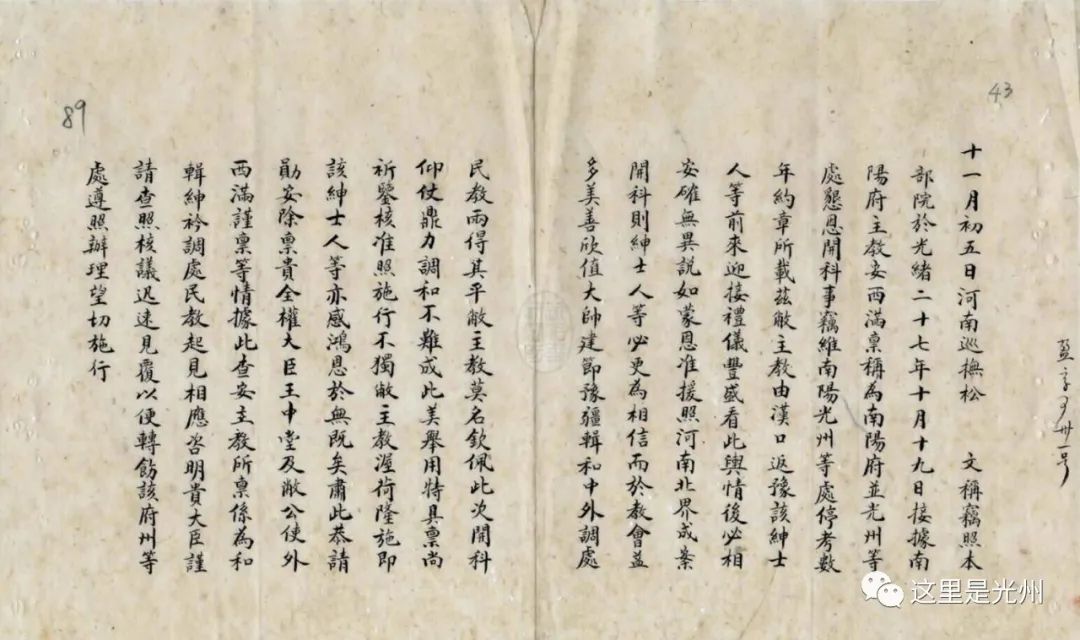 43
十一月初五日河南巡撫松　文稱竊照本
部院於光緒二十七年十月十九日接據南
陽府主教安西滿稟稱為南陽府並光州等
處懇恩開科事竊維南陽光州等處停考數
年約章所載茲敝主教由漢口返豫該紳士
人等前來迎接禮儀豐盛看此輿情後必相
安確無異説如蒙恩准援照河南北界成案
開科則紳士人等必更為相信而於教會益
多美善欣值大帥建節豫疆輯和中外調處
民教兩得其平敝主教莫名欽佩此次開科
仰仗鼎力調和不難成此美舉用特具稟尚
祈鑒核准照施行不獨敝主教渥荷隆施即
該紳士人等亦感鴻恩於無既矣肅此恭請
勛安除稟貴全權大臣王中堂及敝公使外
西滿謹稟等情據此查安主教所稟係為和
輯紳衿調處民教起見相應咨明貴大臣謹
請查照核議迅速見覆以便轉飭該府州等
處遵照辦理望切施行
89
这里是光州